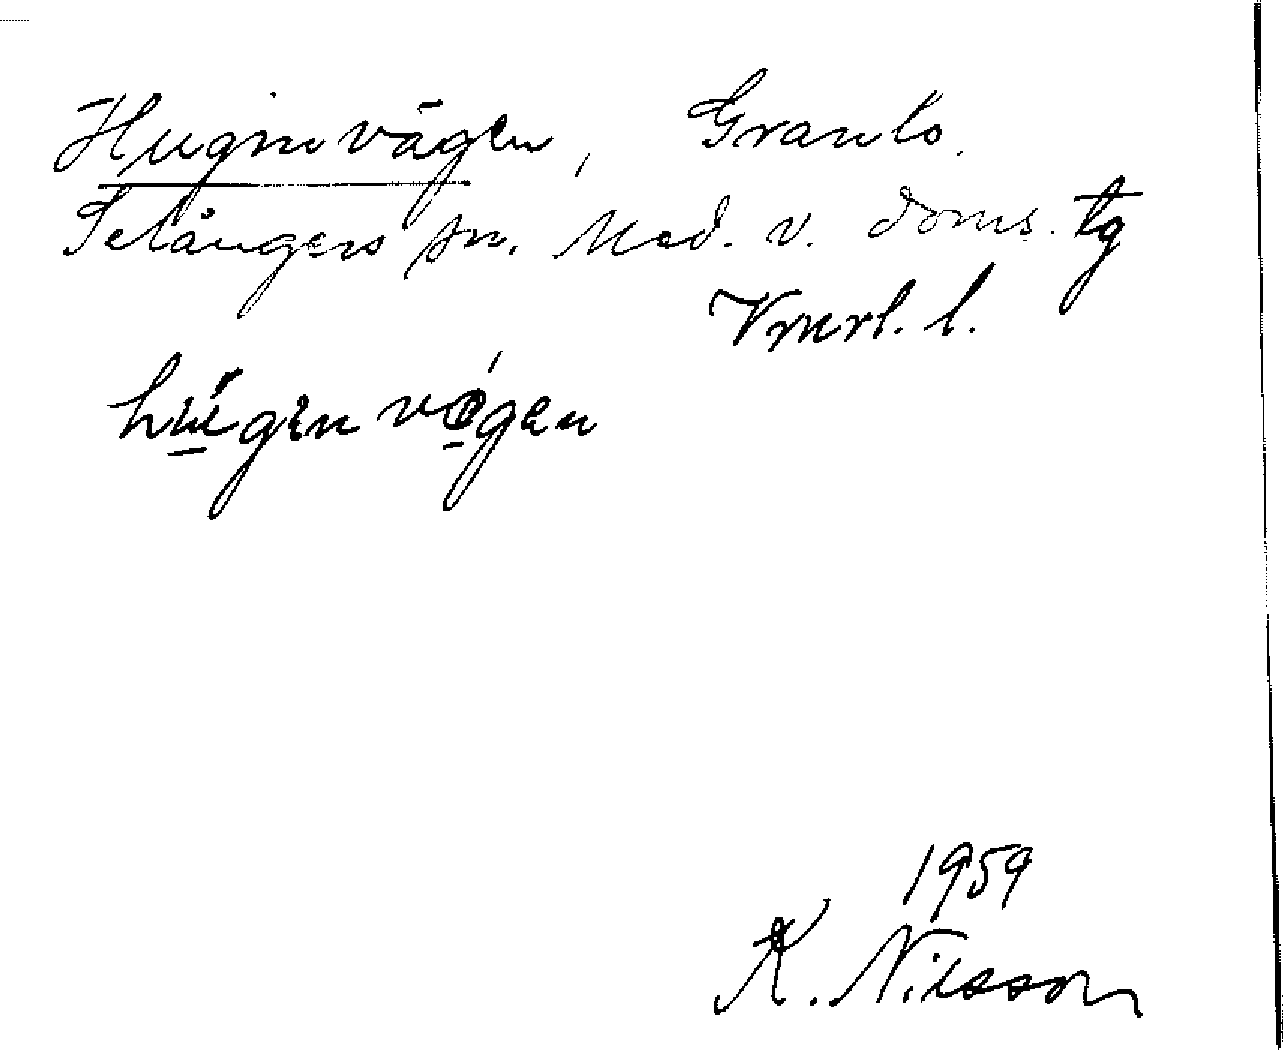 Huginvägen, Granlo.
Selångers sn. Med. v. doms. tg
Vrnrl. l.
hùginvägen
1959
K. Nilsson